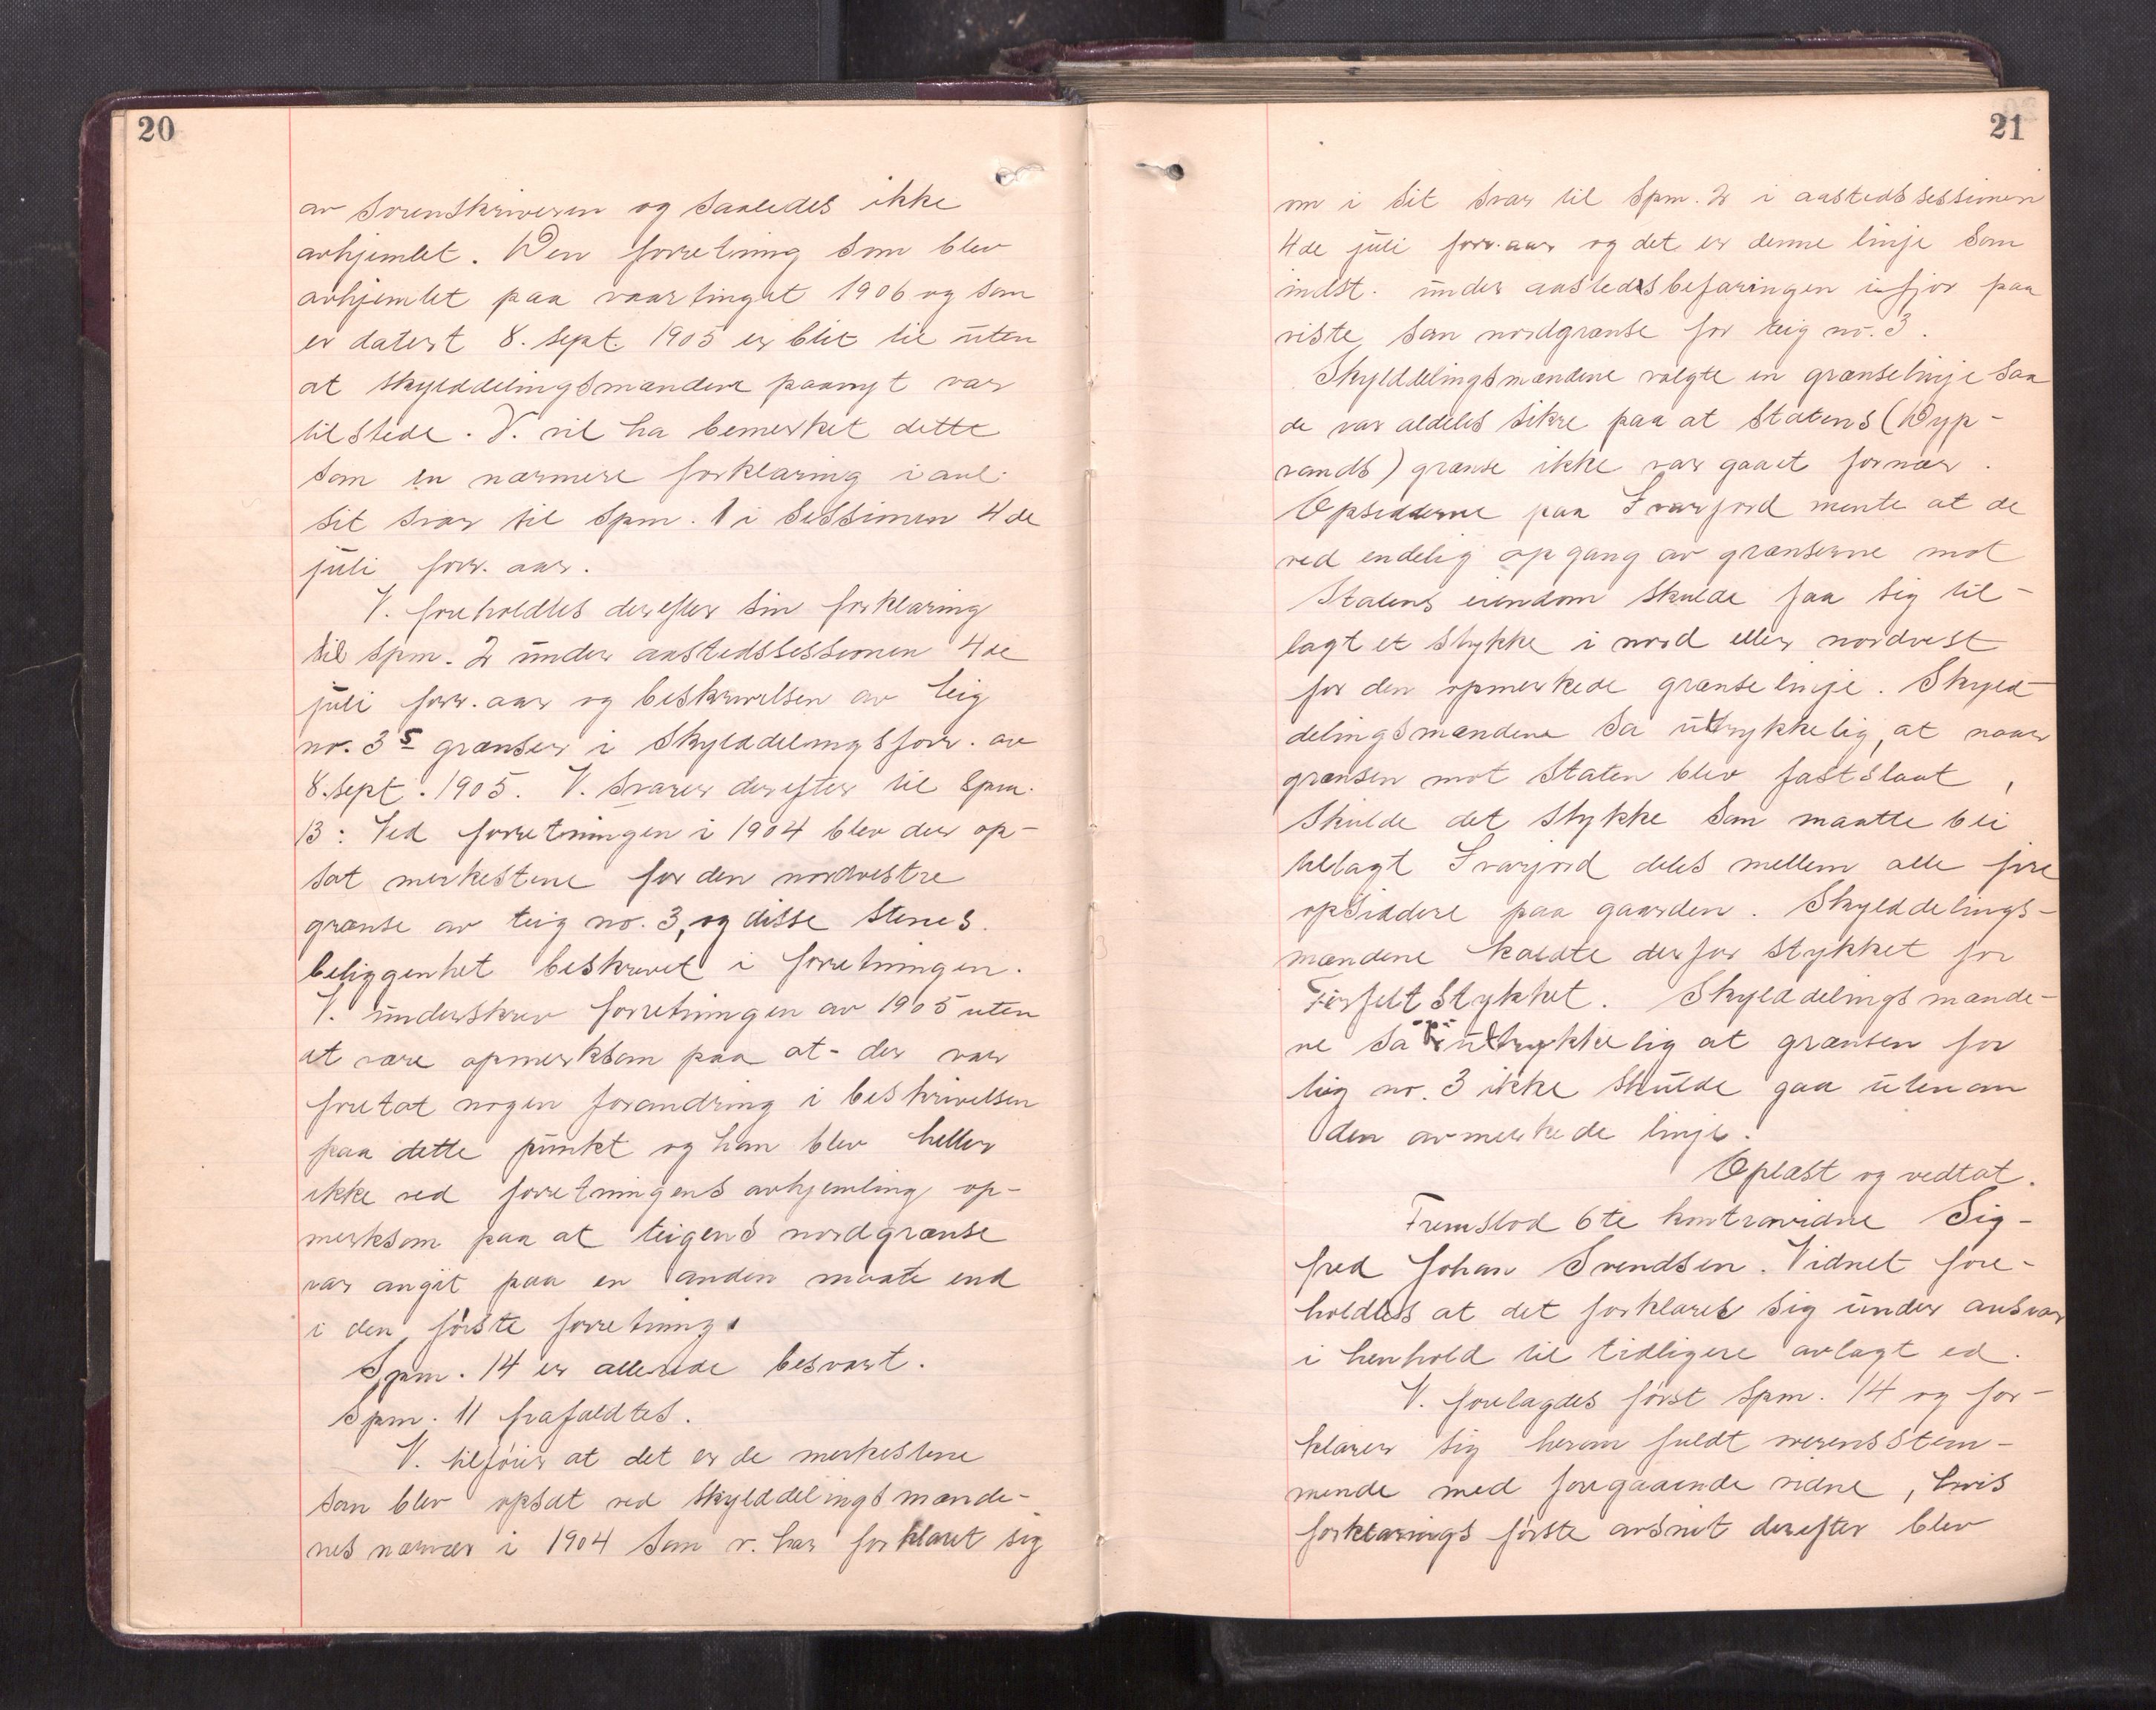 20
av sorenskriveren og saaledes ikke
avhjemlet. Den forretning som blev
avhjemlet paa vaartinget 1906 og som
er datert 8. sept. 1905 er blit til uten
at skylddelingsmændene paanyt var
tilstede. V. vil ha bemerket dette
som en nærmere forklaring i anl.
sit svar til spm. 1 i sessionen 4de
juli forr. aar.
V. foreholdtes derefter sin forklaring
til spm. 2 under aastedssessionen 4de
juli forr. aar og beskrivelsen av teig
no. 3s grænser i skylddelingsforr. av
8. sept. 1905. V. svarer derefter til spm.
13: Ved forretningen i 1904 blev der op-
sat merkestene for den nordvestre
grænse av teig no. 3, og disse stenes
beliggenhet beskrevet i forretningen.
V. underskrev forretningen av 1905 uten
at være opmerksom paa at der var
foretat nogen forandring i beskrivelsen
paa dette punkt og han blev heller
ikke ved forretningens avhjemling op-
merksom paa at teigens nordgrænse
var angit paa en anden maate end
i den første forretning.
Spm. 14 er allerede besvart.
Spm. 11 frafaldtes.
V. tilføier at det er de merkestene
som blev opsat ved skylddelingsmænde-
nes nærvær i 1904 som v. har forklaret sig
21
om i sit svar til spm. 2 i aastedssessionen
4de juli forr. aar og det er denne linje som
indst. under aastedsbefaringen ifjor paa
viste som nordgrænse for teig no. 3.
Skylddelingsmændene valgte en grænselinje saa
de var aldeles sikre paa at Statens (Dyp-
vands) grænse ikke var gaaet fornær.
Opsidderne paa Svarjord mente at de
ved endelig opgang av grænserne mot
Statens eiendom skulde faa sig til-
lagt et stykke i nord eller nordvest
for den opmerkede grænselinje. Skyld-
delingsmændene sa uttrykkelig, at naar
grænsen mot Staten blev fastslaat,
skulde det stykke som maatte bli
tillagt Svarjord deles mellem alle fire
opsiddere paa gaarden. Skylddelings-
mændene kaldte derfor stykket for
Firfeltstykket. Skylddelingsmænde-
ne sa uttrykkelig at grænsen for
teig no. 3 ikke skulde gaa utenom
den avmerkede linje.
Oplæst og vedtat.
Fremstod 6te kontravidne Sig-
fred Johan Svendsen. Vidnet fore-
holdtes at det forklarer sig under ansvar
i henhold til tidligere avlagt ed.
V. forelagdes først spm. 14 og for-
klarer sig herom fuldt overensstem-
mende med foregaaende vidne, hvis
forklarings første avsnit derefter blev